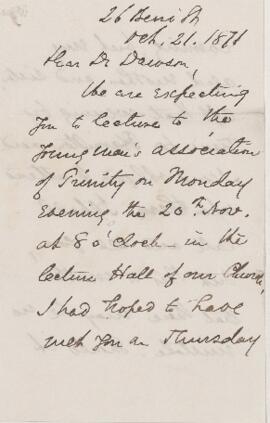 26 Berri St
Oct. 21. 1871
Dear Dr Dawson,
We are expecting
you to lecture to the
young men's association
of Trinity on Monday
evening the 20th Nov.
at 8 o'clock - in the
lecture Hall of our Church,
I had hoped to have
met you on Thursday